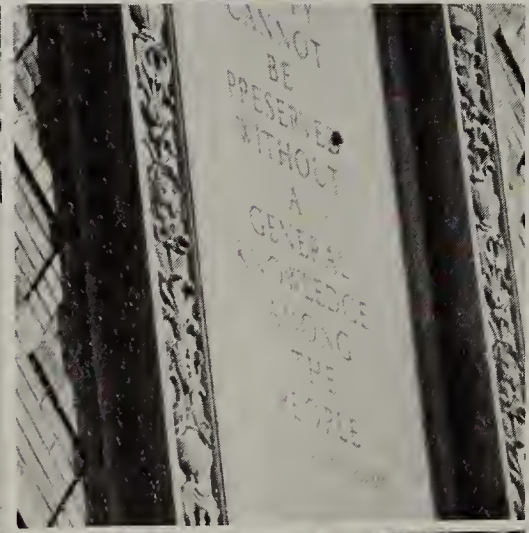 TY
CANNOT
BE
PRESERVED
WITHOUT
A
GENERAL
KNOWLEDGE
AMONG
THE
PEOPLE